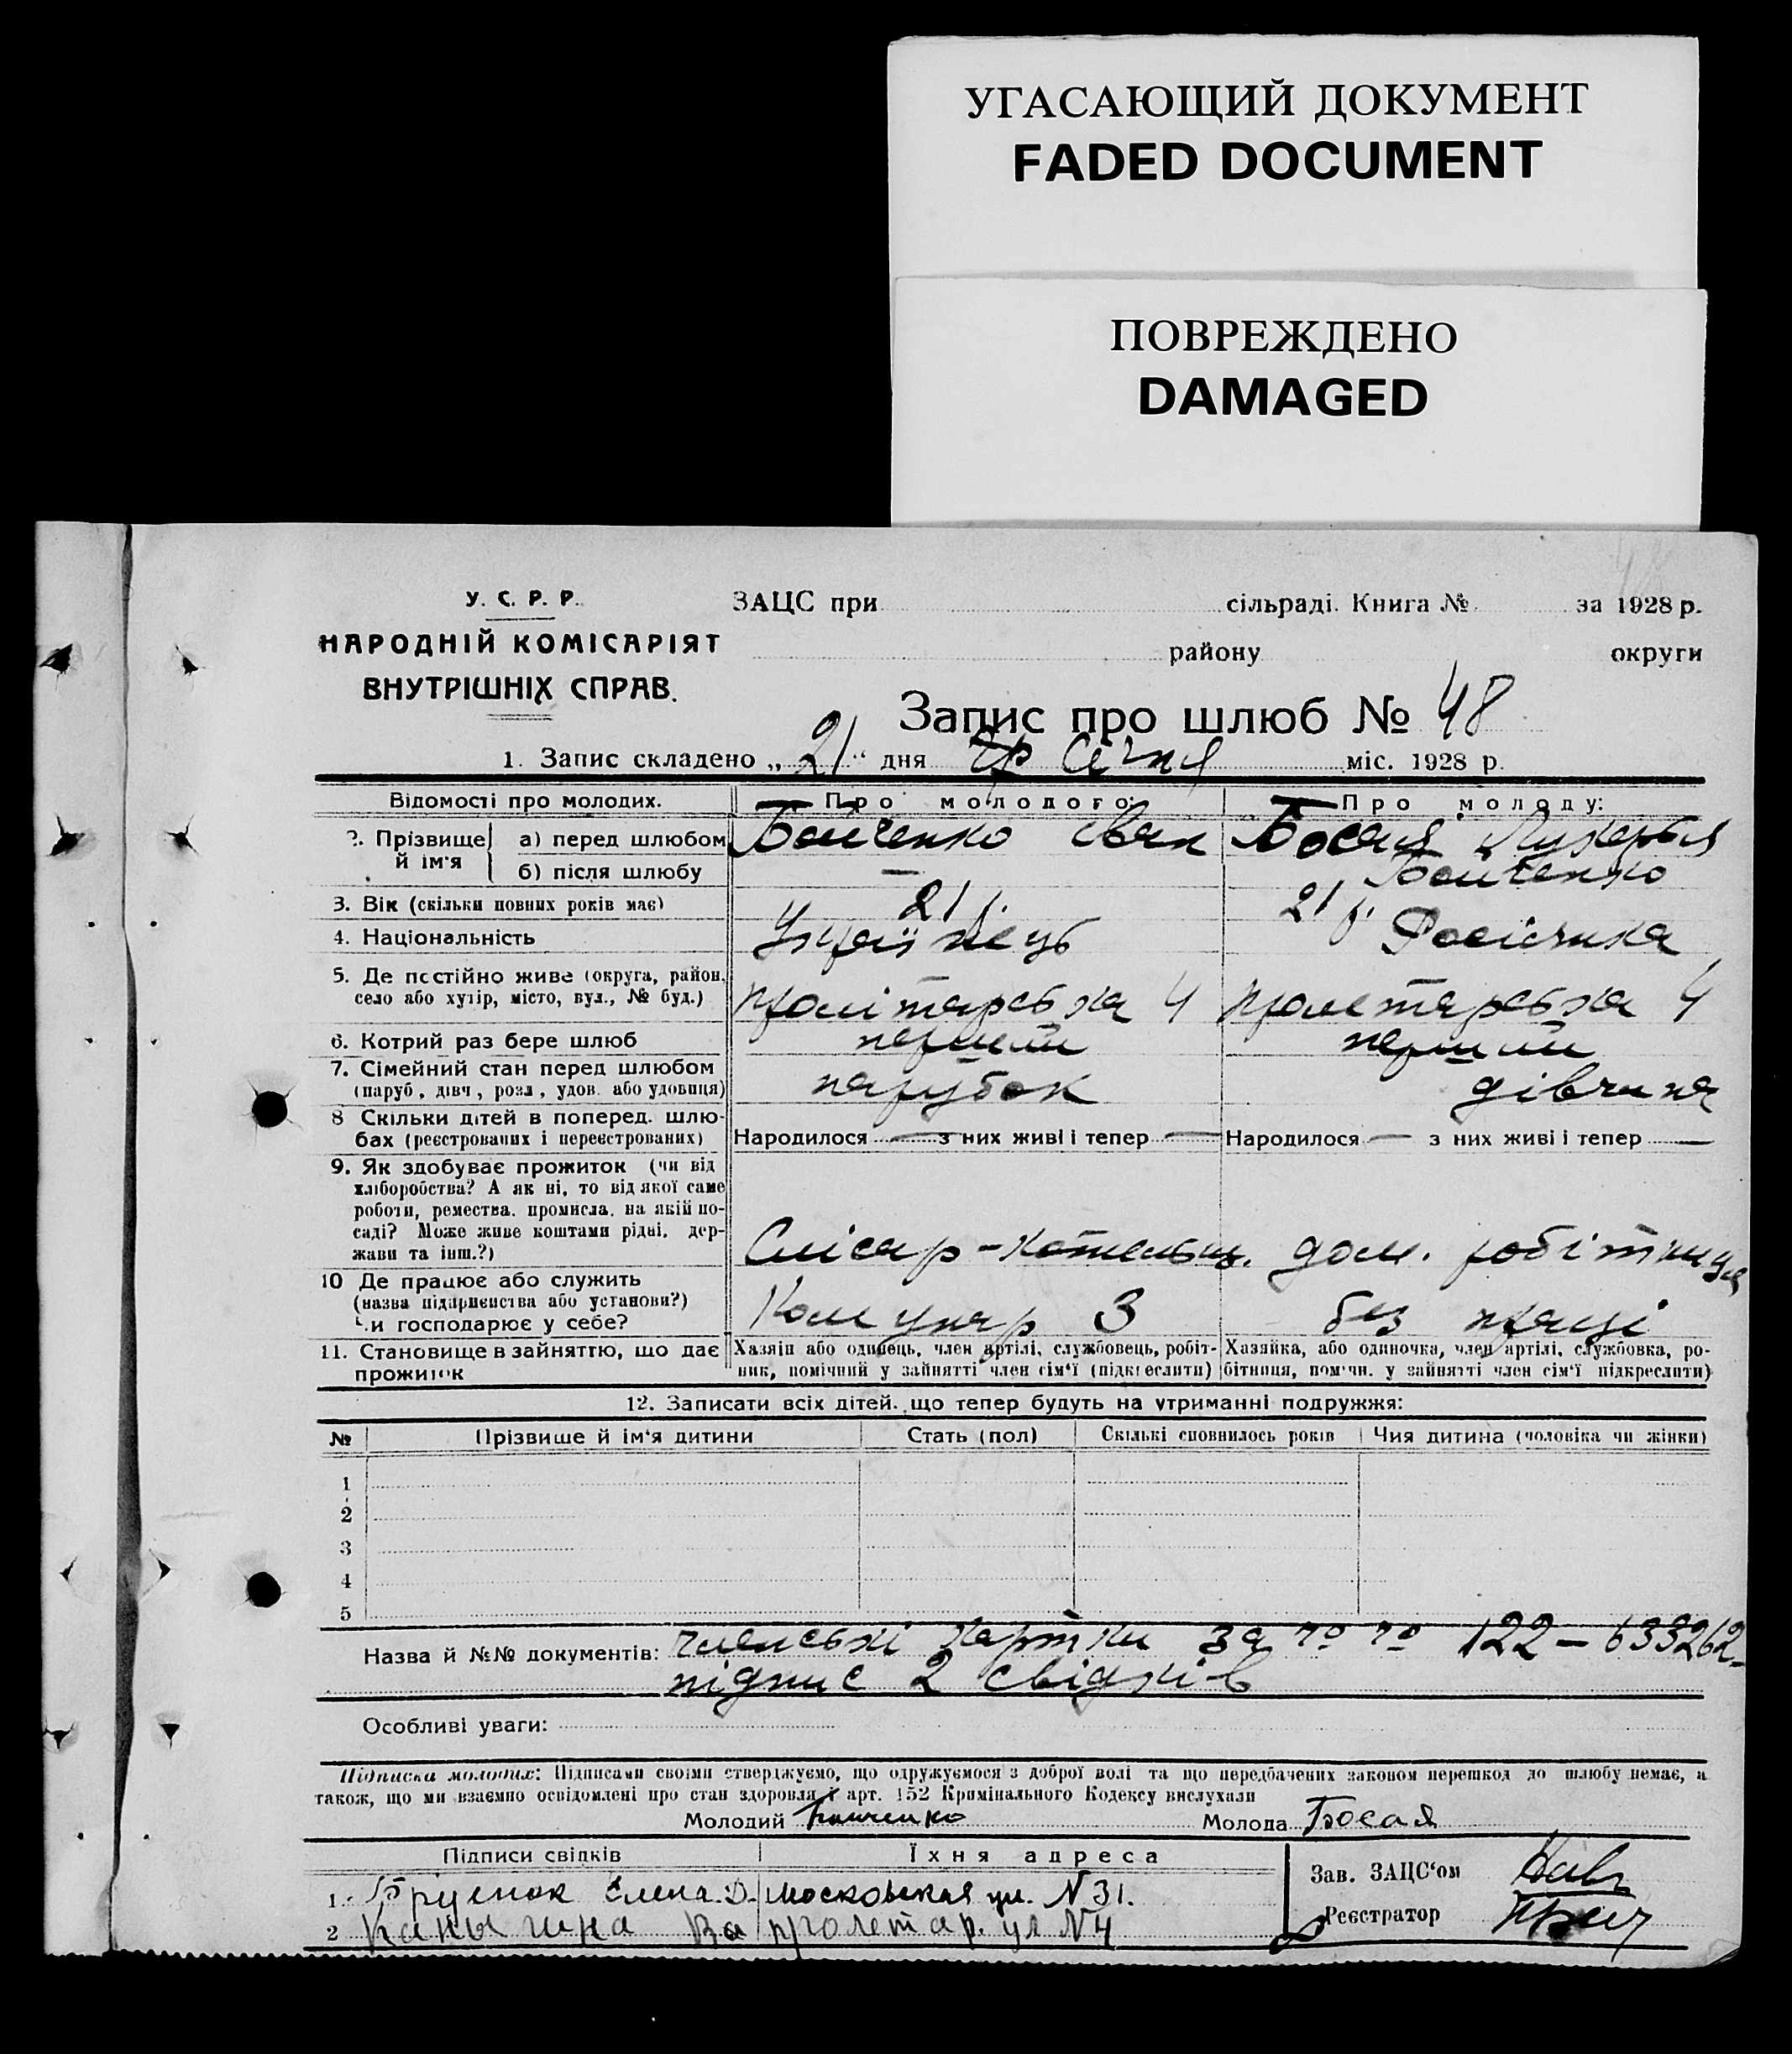 УГАСАЮЩИЙ ДОКУМЕНТ
FADED DOCUMENT
ПОВРЕЖДЕНО
DAMAGED
У. С. Р. Р.
НАРОДНІЙ КОМІСАРІЯТ
ВНУТРІШНІХ СПРАВ.
ЗАЦС при сільраді. Книга № за 1928 р.
району округи
Запис про шлюб № 48
1. Запис складено „21“ дня Січня міс. 1928 р.
Відомості про молодих. Про молодого: Про молоду:
2. Прізвище й ім'я а) перед шлюбом Бойченко Іван Босая Лукерья
б) після шлюбу — Бойченко
3. Вік (скільки повних років має) 21 р. 21 р.
4. Національність Українець Росіянка
5. Де постійно живе (округа, район, село або хутір, місто, вул., № буд.) Пролітарська 4 Пролетарська 4
6. Котрий раз бере шлюб перший перший
7. Сімейний стан перед шлюбом (паруб., дівч., розл., удов. або удовиця) парубок дівчина
8 Скільки дітей в поперед. шлюбах (реєстрованих і нереєстрованих) Народилося — з них живі і тепер — Народилося — з них живі і тепер —
9. Як здобуває прожиток (чи від
хліборобства? А як ні, то від якої саме
роботи, ремества, промисла, на якій по-
саді? Може живе коштами рідні, дер-
жави та інш.?) Слісар-котельщ. дом. робітниця
10 Де працює або служить
(назва підприємства або установи?)
Чи господарює у себе? Комунар 3 без праці
11. Становище в зайняттю, що дає прожиток
Хазяїн або одинець, член артілі, службовець, робіт-
ник, помічний у зайнятті член сім'ї (підкреслити)
Хазяйка, або одиночка, член артілі, службовка, ро-
бітниця, помічн. у зайнятті член сім'ї підкреслити)
12. Записати всіх дітей, що тепер будуть на утриманні подружжя:
№ Прізвище й ім'я дитини Стать (пол) Скількі сповнилось років Чия дитина (чоловіка чи жінки)
1
2
3
4
5
Назва й №№ документів: членські картки за 122 — 633262
підпис 2 свідків
Особливі уваги:
Підписка молодих: Підписами своїми стверджуємо, що одружуємося з доброї волі та що передбачених законом перешкод до шлюбу немає, а
також, що ми взаємно освідомлені про стан здоровля й арт. 152 Кримінального Кодексу вислухали
Молодий Бойченко Молода Босая
Підписи свідків Їхня адреса
1. Елена Д. Московская ул. N 31.
2 Каныгина Ва пролетар. ул N 4
Зав. ЗАЦС'ом
Реєстратор